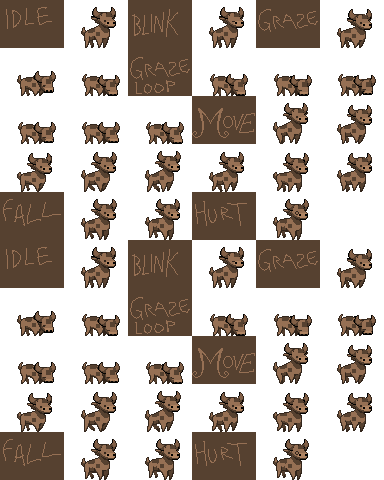 IDLE
BLINK
GRAZE
GRAZE
LOOP
MOVE
FALL
HURT
IDLE
BLINK
GRAZE
GRAZE
LOOP
MOVE
FALL
HURT